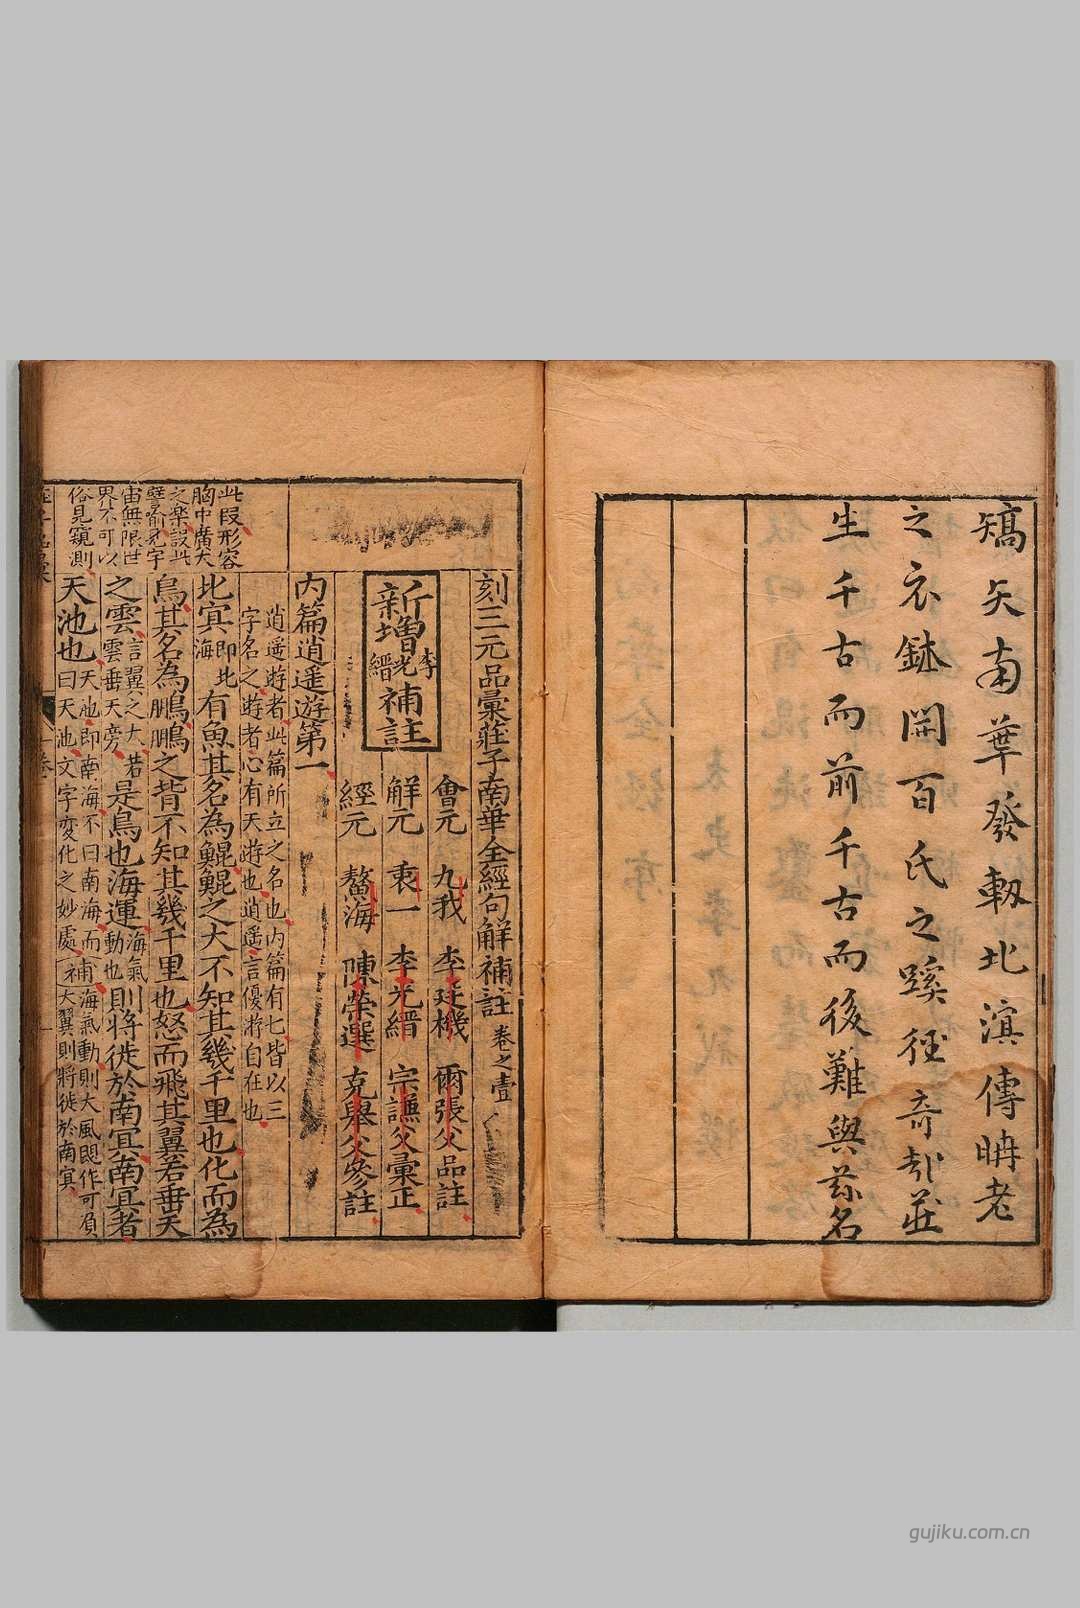 矯矢南華發軔北溟傳聃老
之衣鉢開百氏之蹊徑奇哉莊
生千古而前千古而後難與茲名
刻三元品彙莊子南華全經句解補註 卷之壹
新增李光縉補註
會元 九我 李廷機 爾張父品註
解元 衷一 李光縉 宗謙父彙正
經元 鰲海 陳榮選 克舉父參註
內篇逍遥遊第一
逍遥遊者此篇所立之名也內篇有七皆以三
字名之遊者心有天遊也逍遥言優游自在也
此段形容
胸中廣大
之樂設此
譬喻見宇
宙無限世
界不可以
俗見窺測
北冥海即北有魚其名為鯤鯤之大不知其幾千里也化而為
鳥其名為鵬鵬之背不知其幾千里也怒而飛其翼若垂天
之雲言翼之大若雲垂天旁是鳥也海運海氣動也則將徙於南冥南冥者
天池也天池即南海不曰南海而曰天池文字變化之妙處補海氣動則大風即作可負大翼則將徙於南冥
gujiku.com.cn